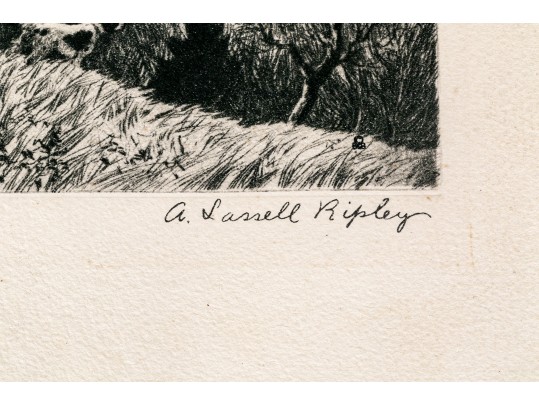 A. Lassell Ripley